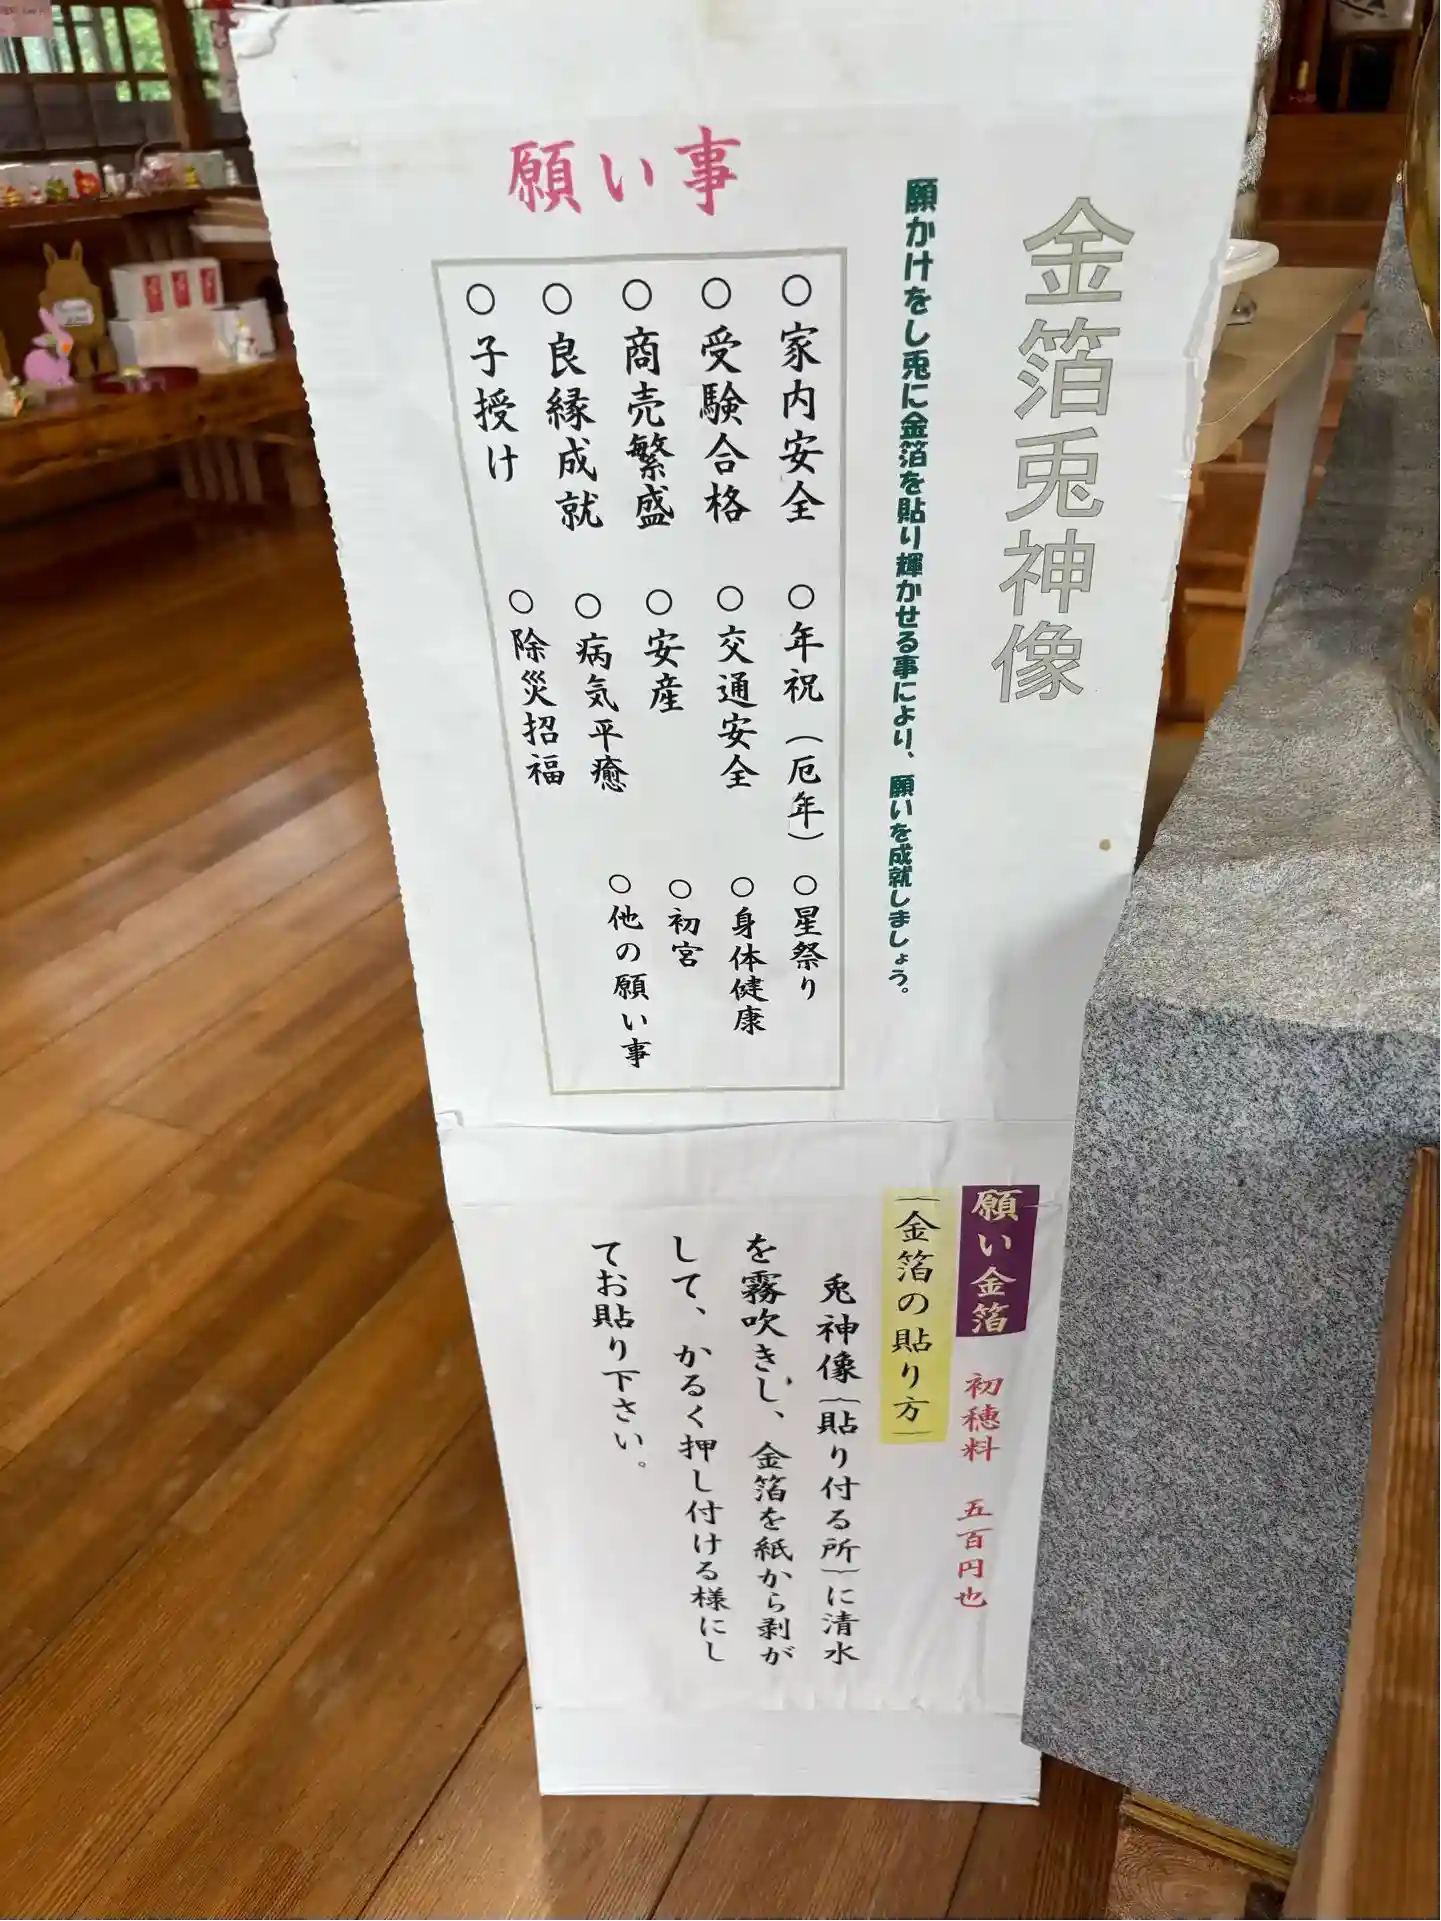 金箔兎神像
願かけをし兎に金箔を貼り輝かせる事により、願いを成就しましょう。
願い事
○家内安全
○受験合格
○商売繁盛
○良縁成就
○子授け
○年祝(厄年)
○交通安全
○安産
○病気平癒
○除災招福
○星祭り
○身体健康
○初宮
○他の願い事
願い金箔 初穂料 五百円也
(金箔の貼り方)
兎神像(貼り付る所)に清水
を霧吹きし、金箔を紙から剥が
して、かるく押し付ける様にし
てお貼り下さい。